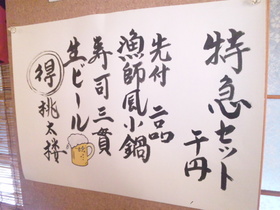 特急セット
千円
先付 二品
漁師風小鍋
寿司三貫
生ビール
得 桃太楼